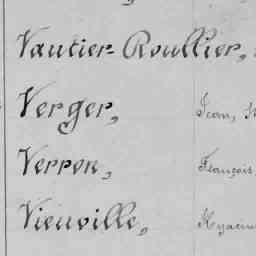 Vautier Roullier,
Verger, Jean,
Verron, François
Vieuville,